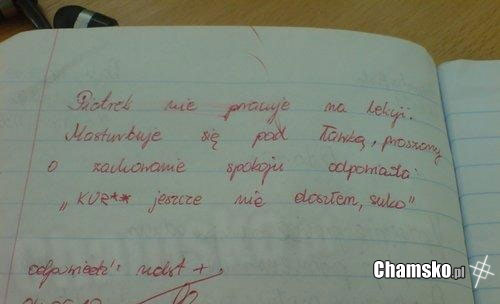 Piotrek nie pracuje na lekcji.
Masturbuje się pod ławką, proszony
o zachowanie spokoju odpowiada:
"KUR** jeszcze nie doszłem, suko"
odpowiedź: ndst +,
Chamsko.pl